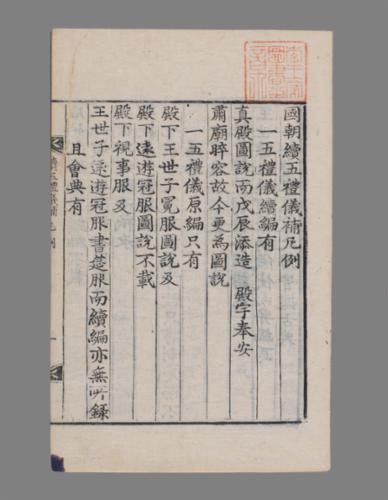 國朝續五禮儀補凡例
一五禮儀續編有
真殿圖說而戊辰添造 殿宇奉安
肅廟晬容故今更為圖說
一五禮儀原編只有
殿下王世子冕服圖說及
殿下遠遊冠服圖說不載
殿下視事服及
王世子遠遊冠服書筵服而續編亦無所錄
且會典有
續五禮儀補凡例
一